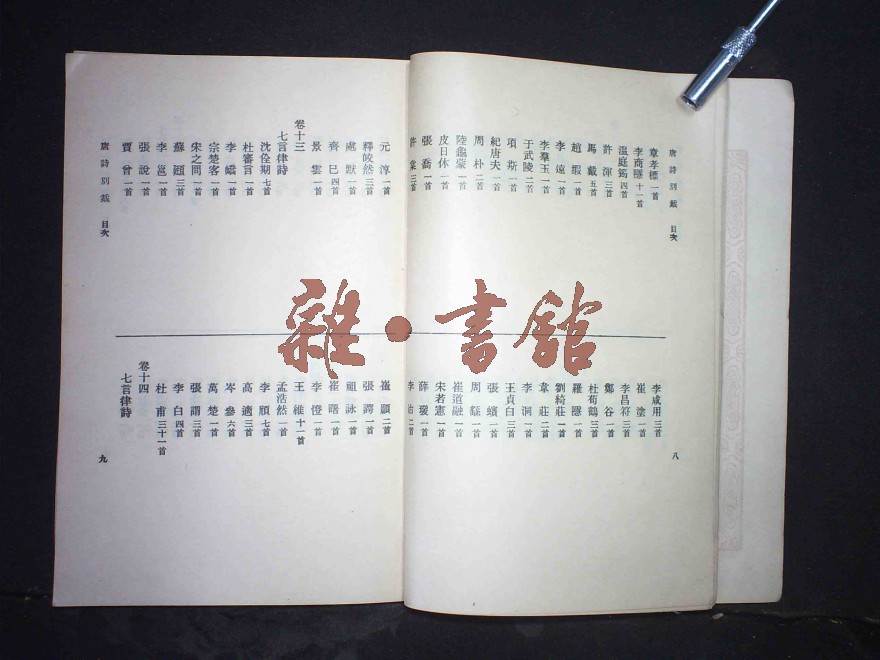 唐詩別裁 目次
章孝標一首
李商隱十一首
溫庭筠四首
許渾三首
馬戴五首
趙嘏一首
李遠一首
李羣玉一首
于武陵二首
項斯一首
紀唐夫一首
周朴二首
陸龜蒙一首
皮日休一首
張喬一首
許棠三首
李咸用三首
崔塗一首
李昌符三首
鄭谷一首
杜荀鶴三首
羅隱一首
劉綺莊一首
韋莊二首
李洞一首
王貞白三首
張蠙一首
周繇一首
崔道融一首
宋若憲一首
薛瑗一首
李冶二首
八
元淳一首
釋皎然三首
處默一首
齊己四首
景雲一首
卷十三
七言律詩
沈佺期七首
杜審言一首
李嶠一首
宗楚客一首
宋之問一首
蘇頲三首
李邕一首
張說一首
賈曾一首
唐詩別裁 目次
崔顥二首
張諤一首
祖詠一首
崔曙一首
李憕一首
王維十一首
孟浩然一首
李頎七首
高適三首
岑參六首
萬楚一首
張謂三首
李白四首
杜甫三十一首
卷十四
七言律詩
九
雜·書館